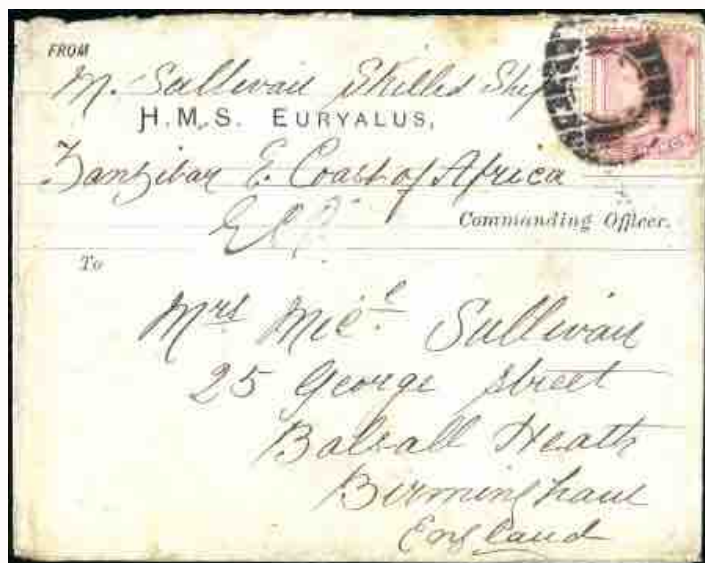 FROM
M. Sullivan Skilled Ship
H.M.S. EURYALUS,
Zanzibar E. Coast of Africa
Commanding Officer.
To
Mrs Micl. Sullivan
25 George Street
Balsall Heath
Birmingham
England